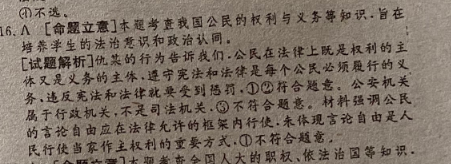 ④不选。
16. A [命题立意]本题考查我国公民的权利与义务等知识,旨在
培养学生的法治意识和政治认同。
[试题解析]仇某的行为告诉我们,公民在法律上既是权利的主
体又是义务的主体,遵守宪法和法律是每个公民必须履行的义
务,违反宪法和法律就要受到惩罚,①②符合题意。公安机关
属于行政机关,不是司法机关,③不符合题意。材料强调公民
的言论自由应在法律允许的框架内行使,未体现言论自由是人
民行使当家作主权利的重要方式,①不符合题意。
[命题立意]本题考查全国人大的职权、依法治国等知识,